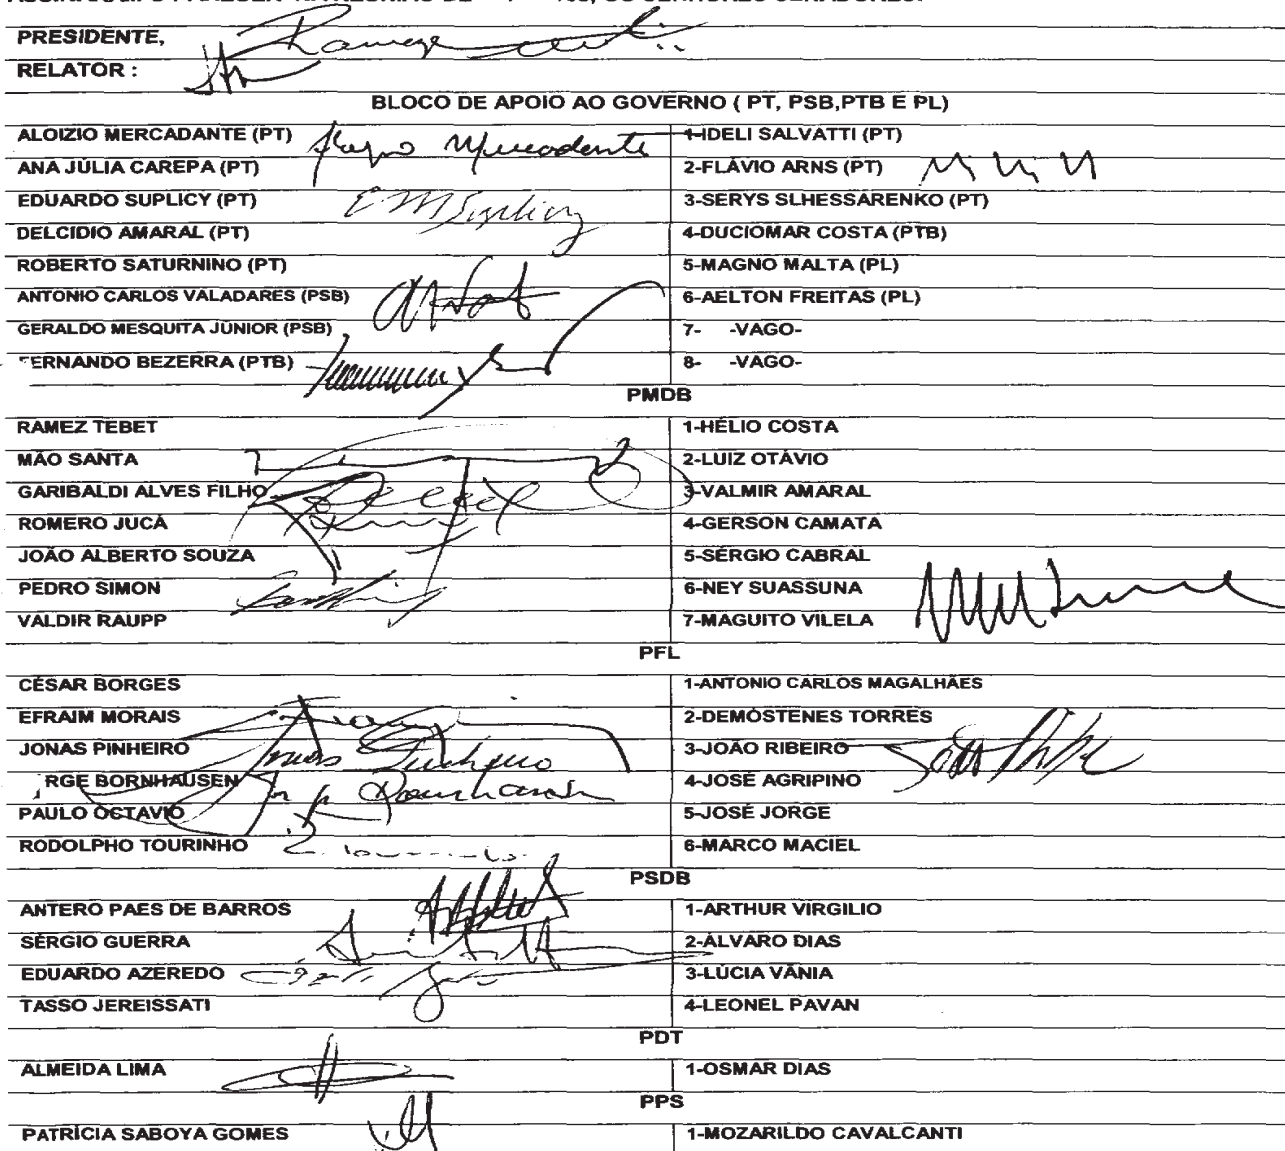 PRESIDENTE, Ramez
RELATOR :
BLOCO DE APOIO AO GOVERNO ( PT, PSB,PTB E PL)
ALOIZIO MERCADANTE (PT) Mercadante 1-IDELI SALVATTI (PT)
ANA JÚLIA CAREPA (PT) 2-FLÁVIO ARNS (PT)
EDUARDO SUPLICY (PT) EMSuplicy 3-SERYS SLHESSARENKO (PT)
DELCÍDIO AMARAL (PT) 4-DUCIOMAR COSTA (PTB)
ROBERTO SATURNINO (PT) 5-MAGNO MALTA (PL)
ANTONIO CARLOS VALADARES (PSB) 6-AELTON FREITAS (PL)
GERALDO MESQUITA JÚNIOR (PSB) 7- -VAGO-
FERNANDO BEZERRA (PTB) 8- -VAGO-
PMDB
RAMEZ TEBET 1-HÉLIO COSTA
MÃO SANTA 2-LUIZ OTÁVIO
GARIBALDI ALVES FILHO 3-VALMIR AMARAL
ROMERO JUCÁ 4-GERSON CAMATA
JOÃO ALBERTO SOUZA 5-SÉRGIO CABRAL
PEDRO SIMON 6-NEY SUASSUNA
VALDIR RAUPP 7-MAGUITO VILELA
PFL
CÉSAR BORGES 1-ANTONIO CARLOS MAGALHÃES
EFRAIM MORAIS 2-DEMÓSTENES TORRES
JONAS PINHEIRO Jonas Pinheiro 3-JOÃO RIBEIRO
RGE BORNHAUSEN Bornhausen 4-JOSÉ AGRIPINO
PAULO OCTAVIO 5-JOSÉ JORGE
RODOLPHO TOURINHO 6-MARCO MACIEL
PSDB
ANTERO PAES DE BARROS 1-ARTHUR VIRGILIO
SÉRGIO GUERRA 2-ÁLVARO DIAS
EDUARDO AZEREDO 3-LÚCIA VÂNIA
TASSO JEREISSATI 4-LEONEL PAVAN
PDT
ALMEIDA LIMA 1-OSMAR DIAS
PPS
PATRÍCIA SABOYA GOMES 1-MOZARILDO CAVALCANTI